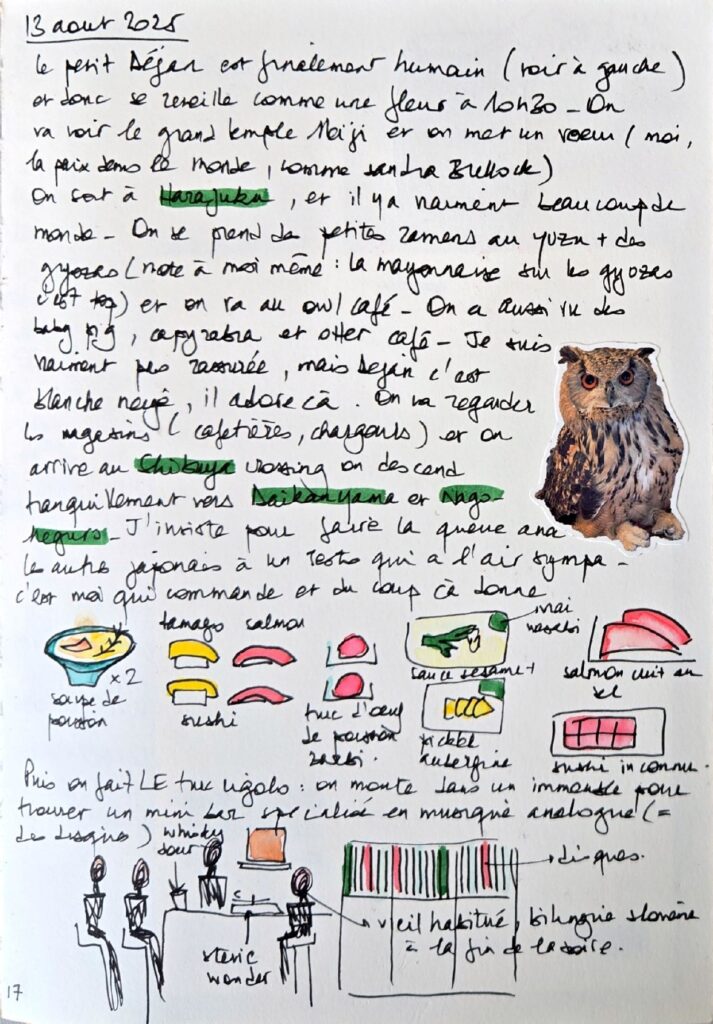 13 aout 2025
Le petit Déjan est finalement humain (voir à gauche)
et donc se reveille comme une fleur à 10h30 - On
va voir le grand temple Meiji et on met un voeu (moi,
la paix dans le monde, comme Sandra Bullock)
On sort à Harajuku, et il y a vraiment beaucoup de
monde - On se prend de petites ramens au yuzu + des
gyozas (note à moi même : la mayonnaise sur les gyozas
c'est top) et on va au owl café - On a aussi vu des
baby pig, capyrabra et otter café - Je suis
vraiment pas rassurée, mais Dejan c'est
blanche neige, il adore çà. On va regarder
les magasins (cafetières, chargeurs) et on
arrive au Chibuya crossing on descend
tranquillement vers Daikanyama et Nago-
neguro - J'insiste pour faire la queue avec
les autres japonais à un resto qui a l'air sympa -
c'est moi qui commande et du coup çà donne
x 2
soupe de
poisson
tamago salmon
sushi
truc d'oeuf
de poisson
mai
wasabi
sauce sesame +
pickle
aubergine
salmon cuit au
sel
sushi inconnu.
Puis on fait LE truc rigolo : on monte dans un immeuble pour
trouver un mini bar specialisé en musique analogue (=
des disques)
whisky
sour
stevie
wonder
disques.
vieil habitué, bilingue slovène
à la fin de la soire.
17